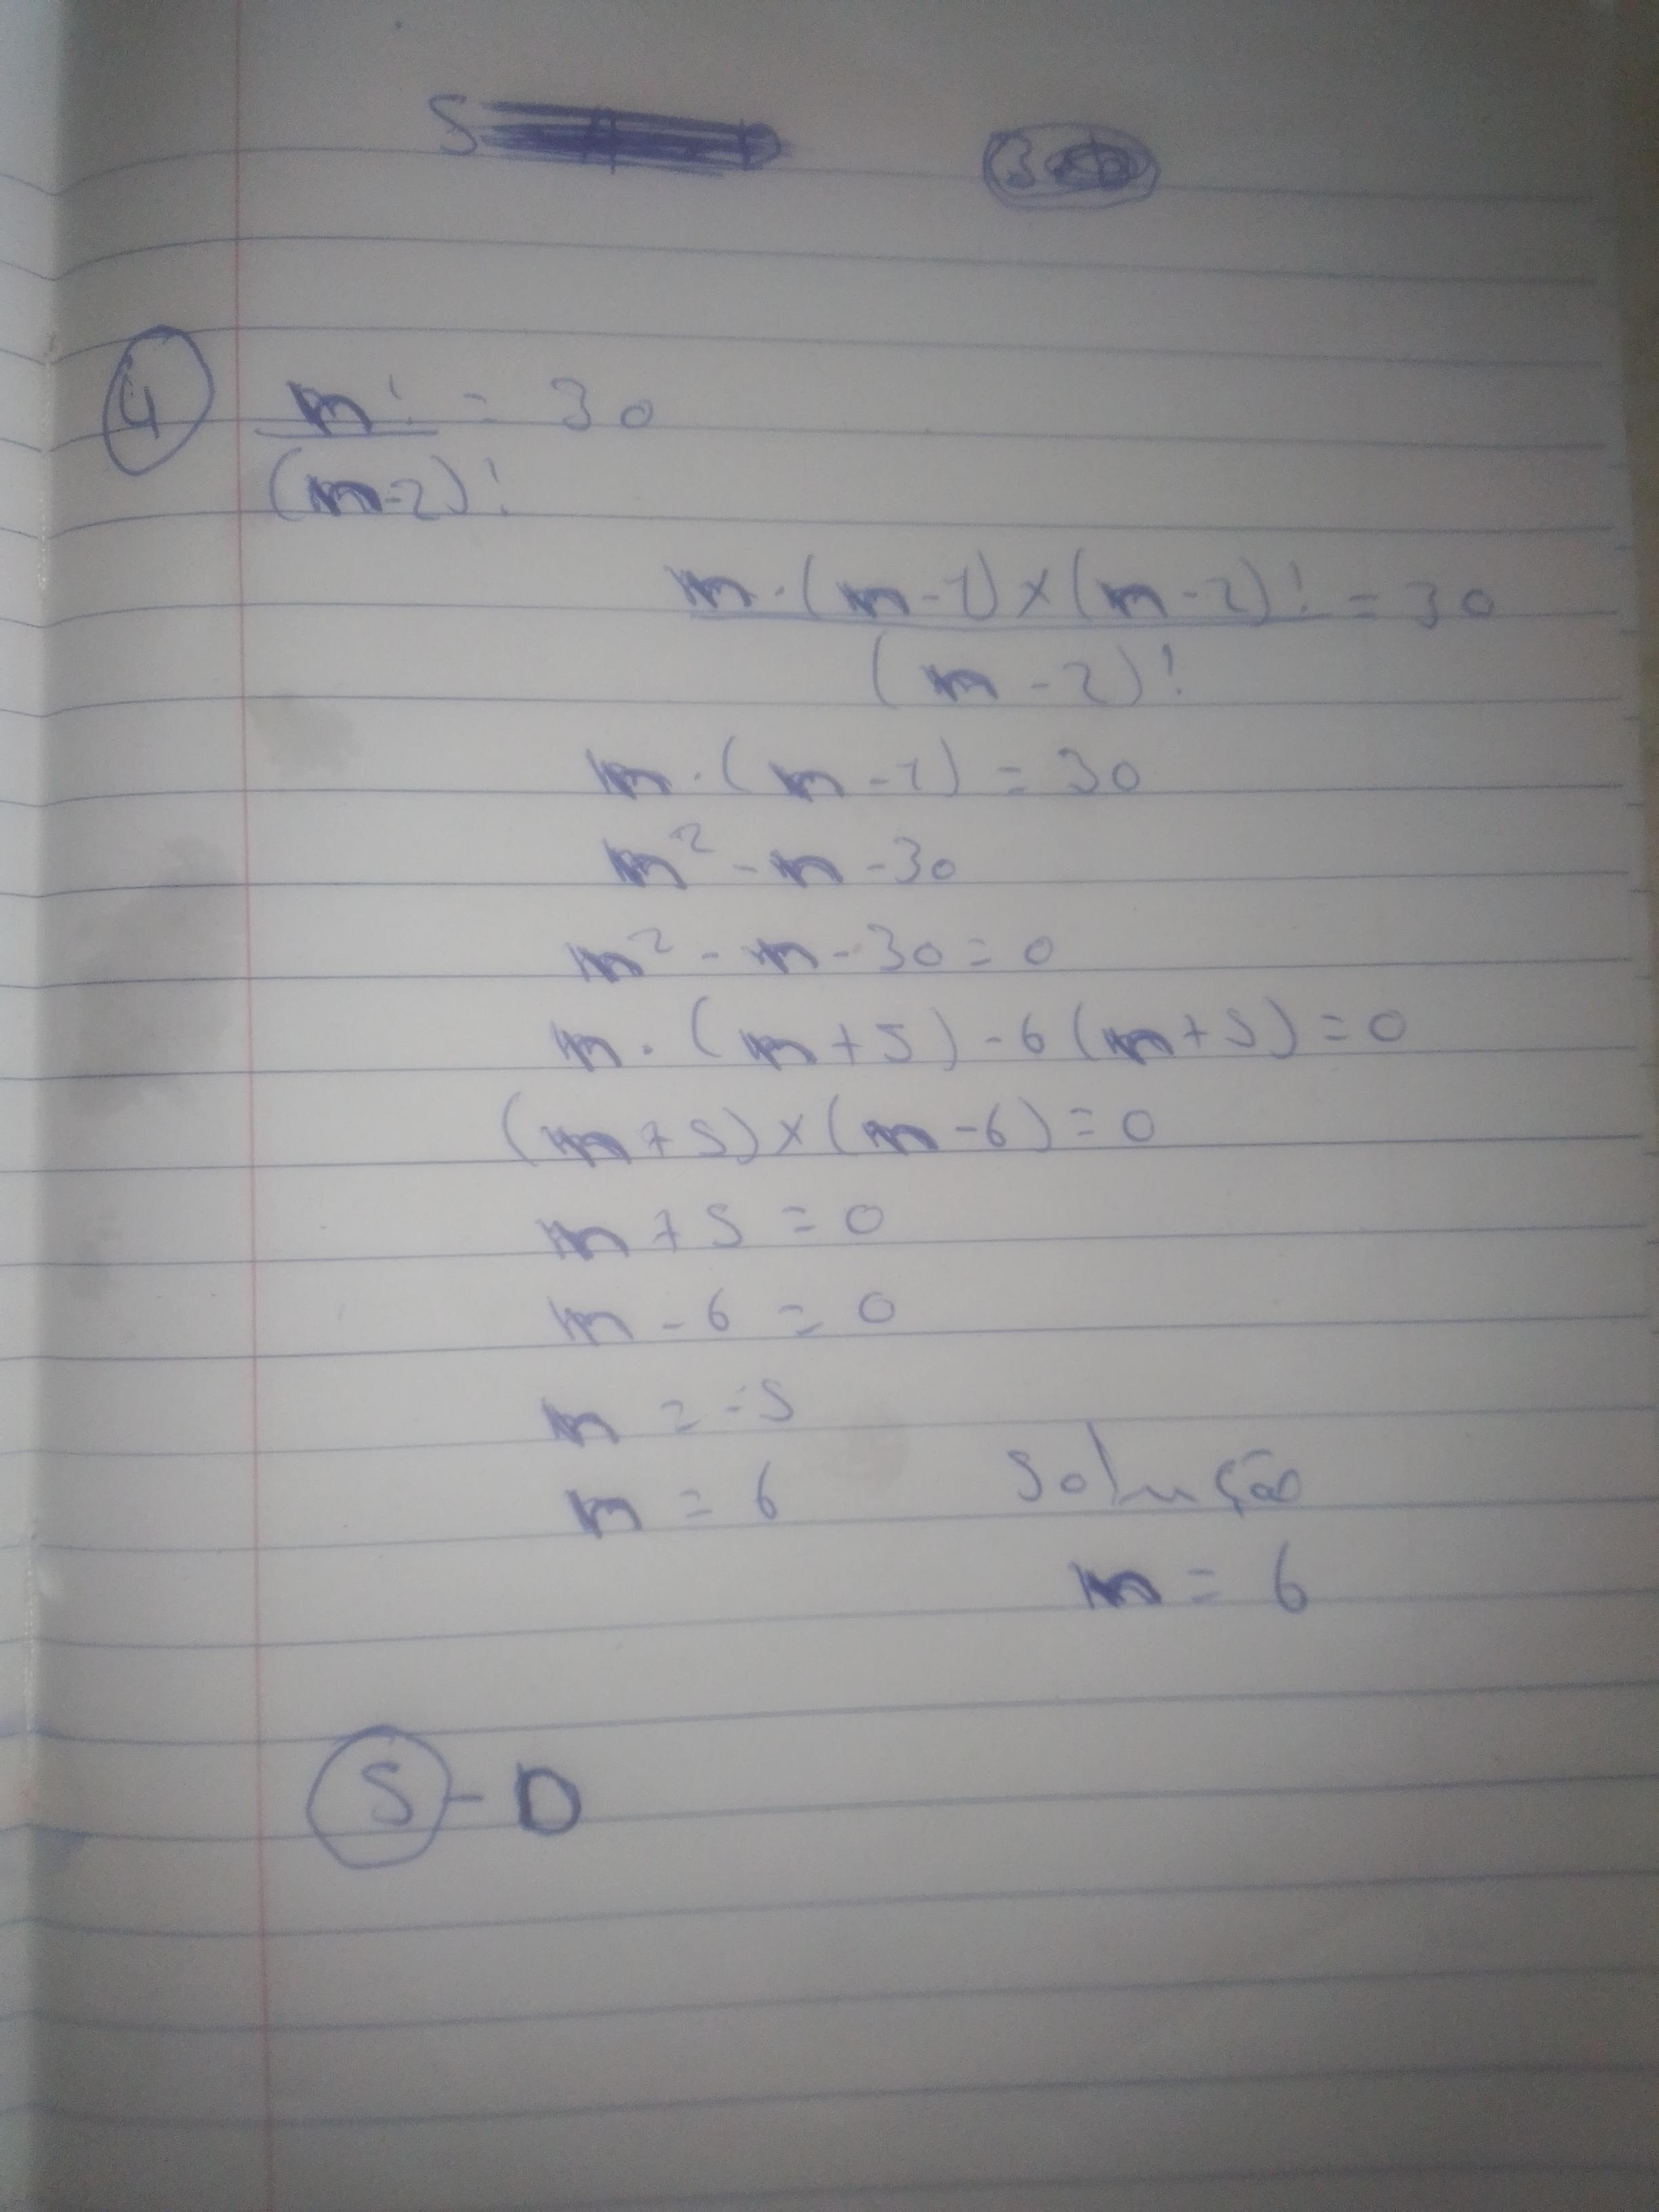 S
3
4 m! = 30
(m-2)!
m·(m-1)×(m-2)! = 30
(m-2)!
m·(m-1) = 30
m² - m - 30
m² - m - 30 = 0
m·(m+5)-6(m+5)=0
(m+5)×(m-6)=0
m+5=0
m-6=0
m=-5
m=6
Solução
m=6
5-D